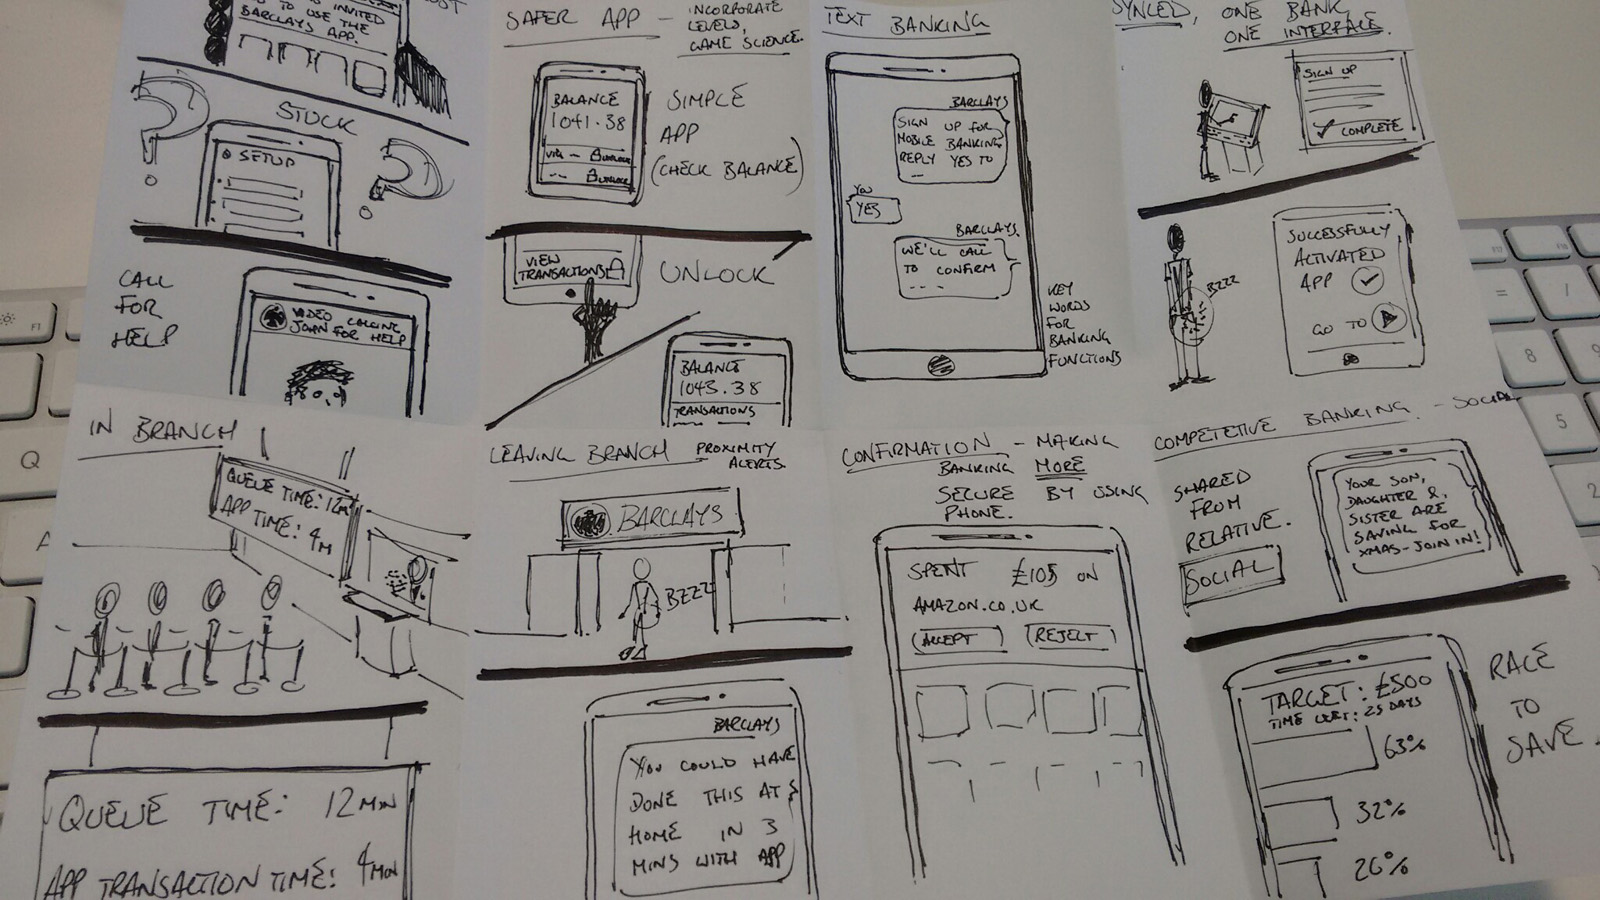 INVITED
TO USE THE
BARCLAYS APP.
STUCK
SETUP
CALL
FOR
HELP
VIDEO CALLING
JOHN FOR HELP
SAFER APP - INCORPORATE
LEVELS,
GAME SCIENCE.
BALANCE
1041.38
UNLOCK
UNLOCK
SIMPLE
APP
(CHECK BALANCE)
VIEW
TRANSACTIONS
UNLOCK
BALANCE
1043.38
TRANSACTIONS
TEXT BANKING
BARCLAYS
SIGN UP FOR
MOBILE BANKING
REPLY YES TO
YOU
YES
BARCLAYS
WE'LL CALL
TO CONFIRM
KEY
WORDS
FOR
BANKING
FUNCTIONS
SYNCED, ONE BANK,
ONE INTERFACE.
SIGN UP
COMPLETE
BZZZ
SUCCESSFULLY
ACTIVATED
APP
GO TO
IN BRANCH
QUEUE TIME: 12M
APP TIME: 4M
QUEUE TIME: 12MIN
APP TRANSACTION TIME: 4MIN
LEAVING BRANCH PROXIMITY
ALERTS
BARCLAYS
BZZZ
BARCLAYS
YOU COULD HAVE
DONE THIS AT
HOME IN 3
MINS WITH APP
CONFIRMATION - MAKING
BANKING MORE
SECURE BY USING
PHONE.
SPENT £105 ON
AMAZON.CO.UK
ACCEPT REJECT
COMPETETIVE BANKING. - SOCIAL
SHARED
FROM
RELATIVE.
SOCIAL
YOUR SON,
DAUGHTER &
SISTER ARE
SAVING FOR
XMAS-JOIN IN!
TARGET: £500
TIME LEFT: 25 DAYS
63%
32%
26%
RACE
TO
SAVE.
F1
Q
A
=
/
8
5
2